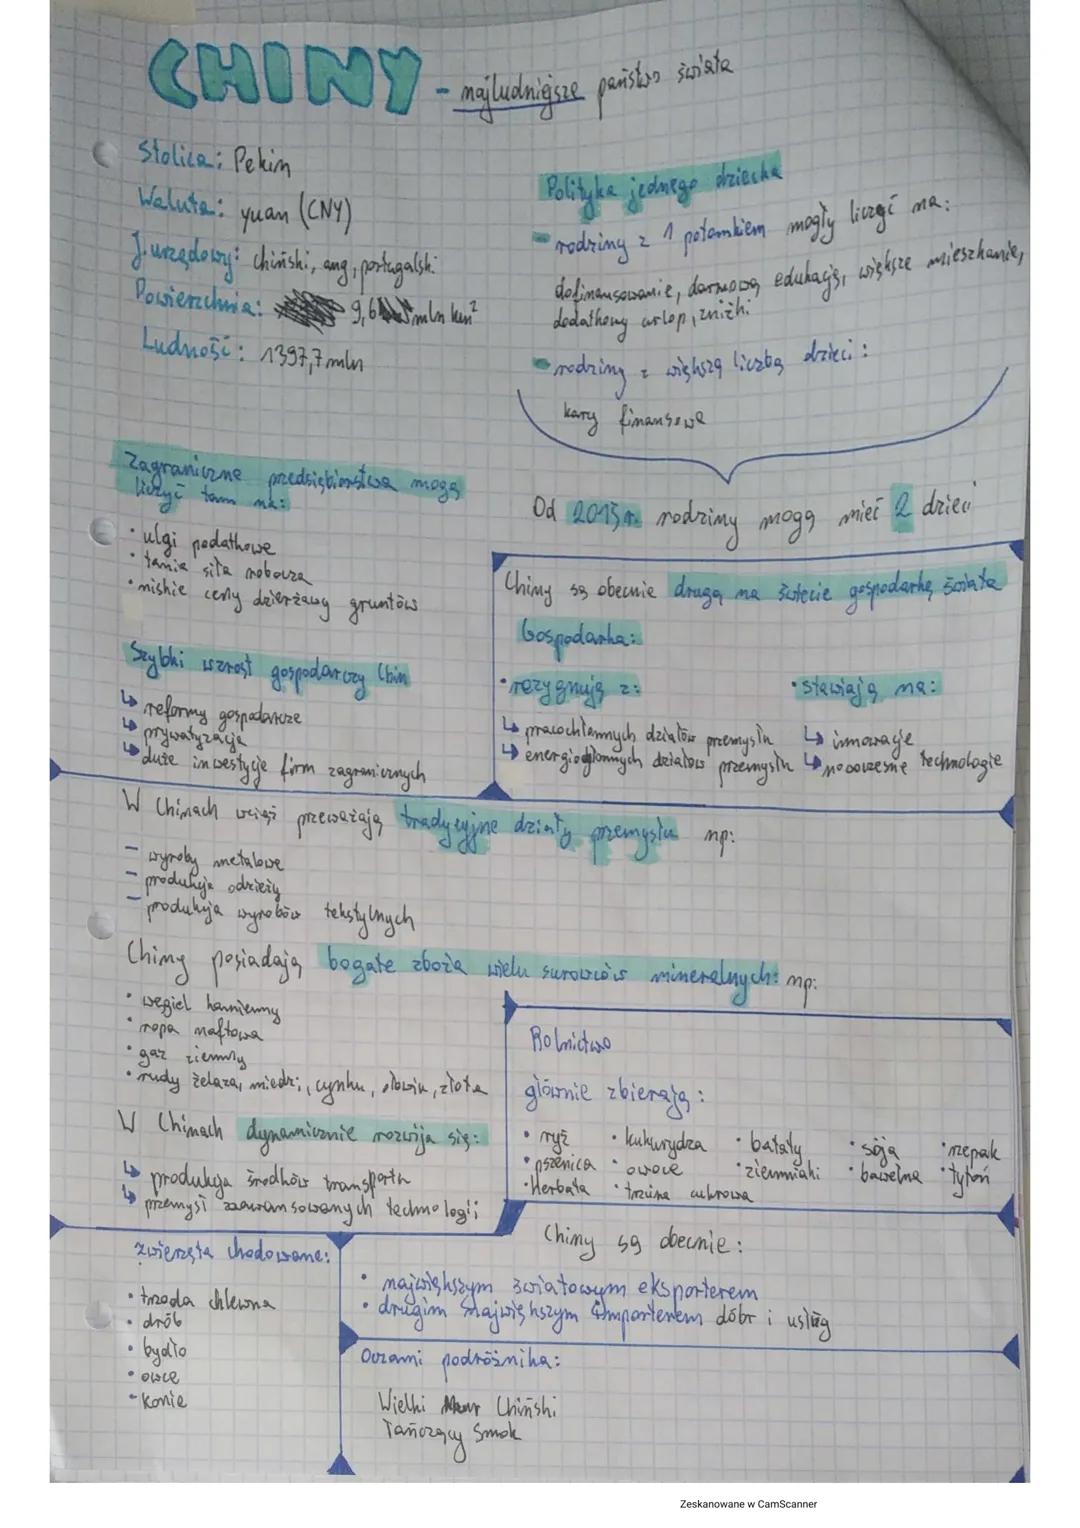 CHINY - najludniejsze państwo świata
Stolica: Pekin
Waluta: yuan (CNY)
J. urzędowy: chiński, ang, portugalski
Powierzchnia: 9,6 mln km²
Ludność: 1397,7 mln
Polityka jednego dziecka
- rodziny z 1 potomkiem mogły liczyć na:
dofinansowanie, darmową edukację, większe mieszkanie,
dodatkowy urlop, zniżki.
- rodziny z większą liczbą dzieci:
kary finansowe
Od 2015 r. rodziny mogą mieć 2 dzieci
Zagraniczne przedsiębiorstwa mogą
liczyć tam na:
• ulgi podatkowe
• tania siła robocza
• niskie ceny dzierżawy gruntów
Szybki wzrost gospodarczy Chin
↳ reformy gospodarcze
↳ prywatyzacja
↳ duże inwestycje firm zagranicznych
Chiny są obecnie drugą na świecie gospodarką świata
Gospodarka:
• rezygnują z:
↳ pracochłonnych działów przemysłu
↳ energiochłonnych działów przemysłu
• stawiają na:
↳ innowacje
↳ nowoczesne technologie
W Chinach wciąż przeważają tradycyjne działy przemysłu np:
- wyroby metalowe
- produkcja odzieży
- produkcja wyrobów tekstylnych
Chiny posiadają bogate zboża wielu surowców mineralnych: np:
• węgiel kamienny
• ropa naftowa
• gaz ziemny
• rudy żelaza, miedzi, cynku, ołowiu, złota
W Chinach dynamicznie rozwija się:
↳ produkcja środków transportu
↳ przemysł zaawansowanych technologii
Rolnictwo
głównie zbierają:
• ryż • kukurydza • bataty • soja • rzepak
• pszenica • owoce • ziemniaki • bawełna • tytoń
• Herbata • trzcina cukrowa
zwierzęta hodowane:
• trzoda chlewna
• drób
• bydło
• owce
- konie
Chiny są obecnie:
• największym światowym eksporterem
• drugim największym importerem dóbr i usług
Oczami podróżnika:
Wielki Mur Chiński
Tańczący Smok
Zeskanowane w CamScanner